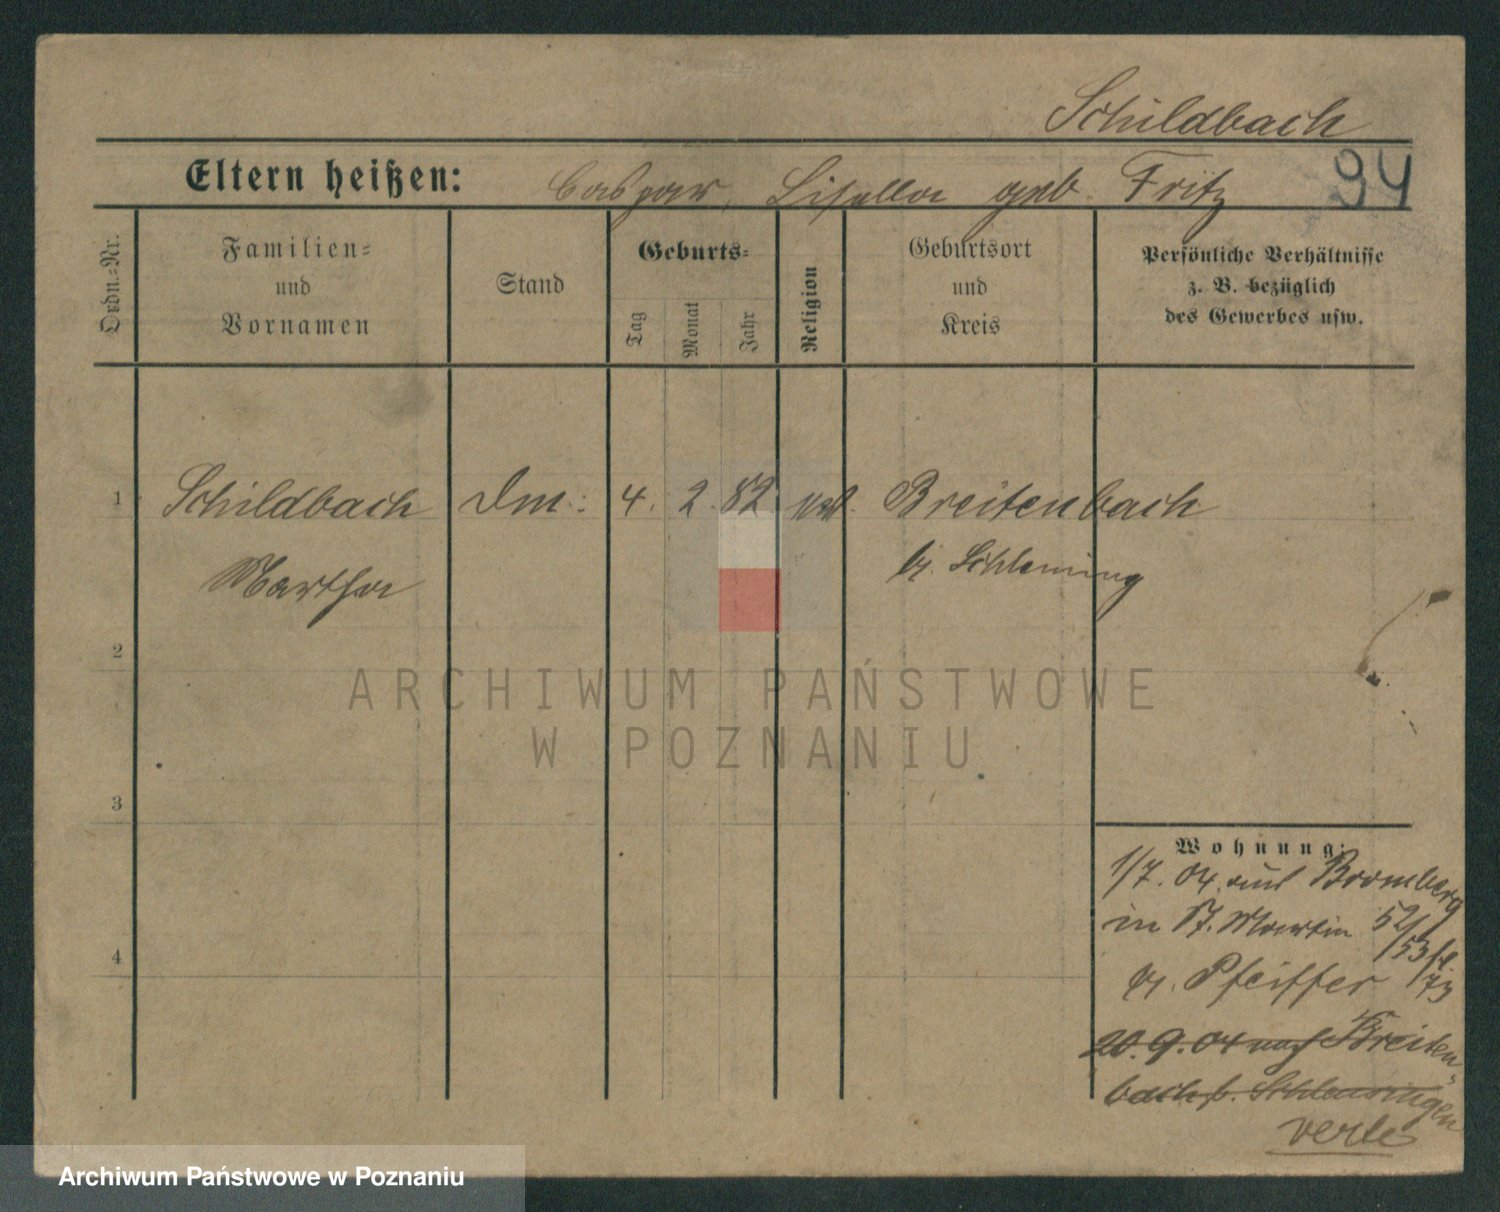 Schildbach
Eltern heißen: Casper, Lisella geb. Fritz 94
Ordn.=Nr.
Familien=
und
Vornamen
Stand
Geburts=
Tag
Monat
Jahr
Religion
Geburtsort
und
Kreis
Persönliche Verhältnisse
z. B. bezüglich
des Gewerbes usw.
1 Schildbach Dm: 4. 2. 82. Breitenbach
Martha Schleusing
2
3
4
Wohnung:
1/7. 04. aus Bromberg
in St. Martin 52/
/53
Pfeiffer
20. 9. 04 nach Breiten
bach b. Schleusingen
ARCHIWUM PAŃSTWOWE
W POZNANIU
Archiwum Państwowe w Poznaniu